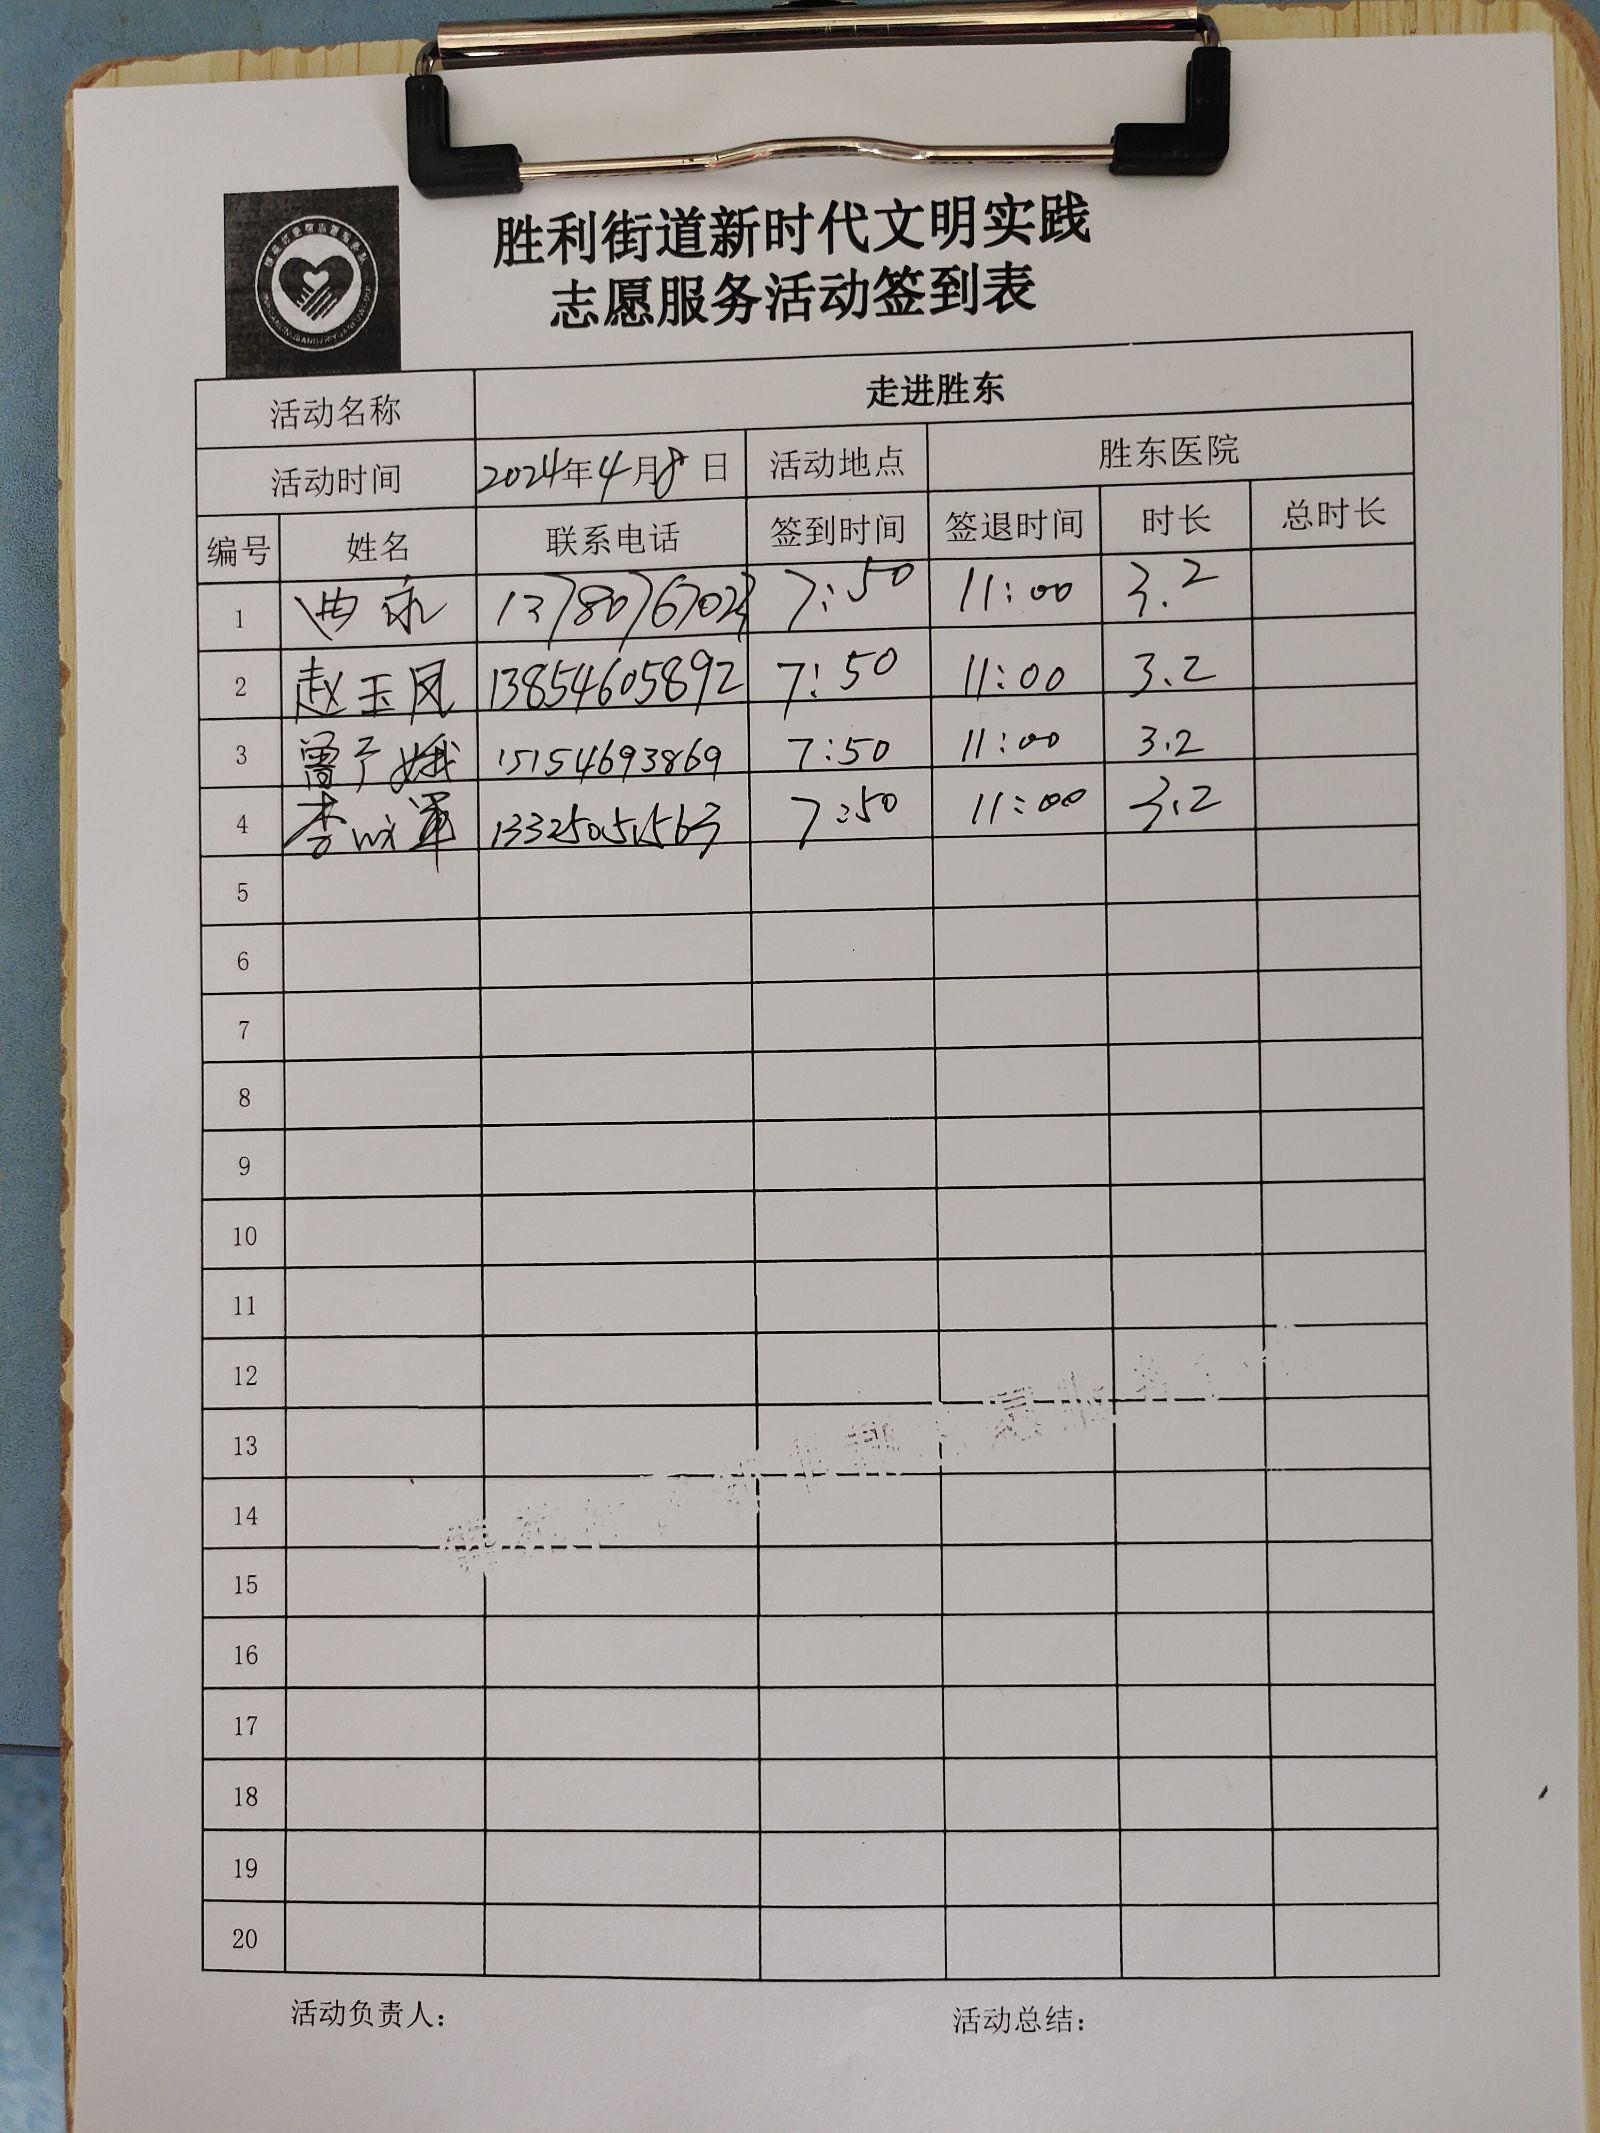 胜利街道新时代文明实践
志愿服务活动签到表
活动名称 走进胜东
活动时间 2024年4月8日 活动地点 胜东医院
编号 姓名 联系电话 签到时间 签退时间 时长 总时长
1 曲永 7:50 11:00 3.2
2 赵玉凤 13854605892 7:50 11:00 3.2
3 曾子娥 15154693869 7:50 11:00 3.2
4 李 军 13325051563 7:50 11:00 3.2
5
6
7
8
9
10
11
12
13
14
15
16
17
18
19
20
活动负责人: 活动总结: